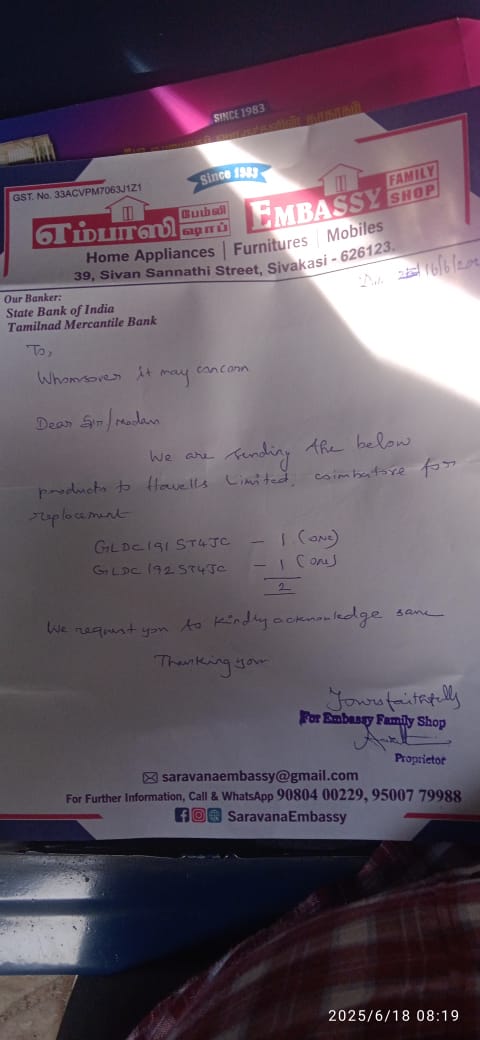 SINCE 1983
GST. No. 33ACVPM7063J1Z1
Since 1983
எம்பாஸி பேம்லி ஷாப்
EMBASSY FAMILY SHOP
Home Appliances | Furnitures | Mobiles
39, Sivan Sannathi Street, Sivakasi - 626123.
16/6/202
Our Banker:
State Bank of India
Tamilnad Mercantile Bank
To,
Whomsover it may concorn
Dear Sir/Madam
We are sending the below
products to Havells Limited, coimbatore for
replacement
GLDC191ST4JC - 1 (ONE)
GLDC192ST4JC - 1 (ONE)
2
We request you to kindly acknowledge same
Thanking you
Yours faithfully
For Embassy Family Shop
Proprietor
saravanaembassy@gmail.com
For Further Information, Call & WhatsApp 90804 00229, 95007 79988
SaravanaEmbassy
2025/6/18 08:19